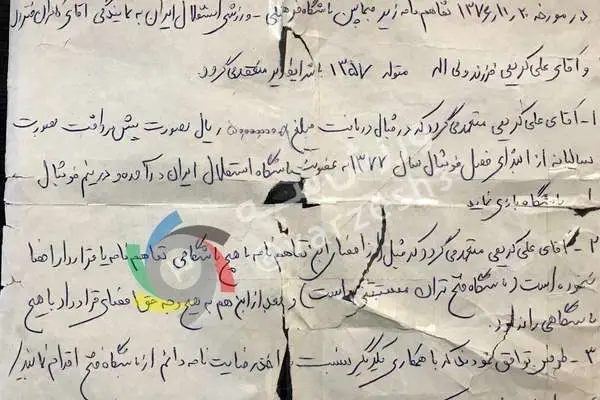 در مورخه ۲۰ / ۱۱ / ۱۳۷۶ تفاهم نامه زیر مابین باشگاه فرهنگی - ورزشی استقلال ایران به نمایندگی آقای
و آقای علی کریمی فرزند ولی اله متولد ۱۳۵۷ با شرایط زیر منعقد می گردد
۱- آقای علی کریمی متعهد می گردد که در قبال دریافت مبلغ ریال بصورت پیش پرداخت بصورت
سالیانه از ابتدای فصل فوتبال سال ۱۳۷۷ به عضویت باشگاه استقلال ایران در آمده و در تیم فوتبال
باشگاه بازی نماید
۲- آقای علی کریمی متعهد می گردد که قبل از امضای این تفاهم نامه با هیچ باشگاهی تفاهم نامه یا قرارداد امضا
ننموده است (باشگاه فتح تهران مستثنی است) و بعد از این هم به هیچ وجه حق امضای قرارداد با هیچ
باشگاهی را ندارد.
۳- طرفین توافق نمودند که با همکاری یکدیگر نسبت به اخذ رضایت نامه دائم از باشگاه فتح اقدام نمایند
@varzesh3